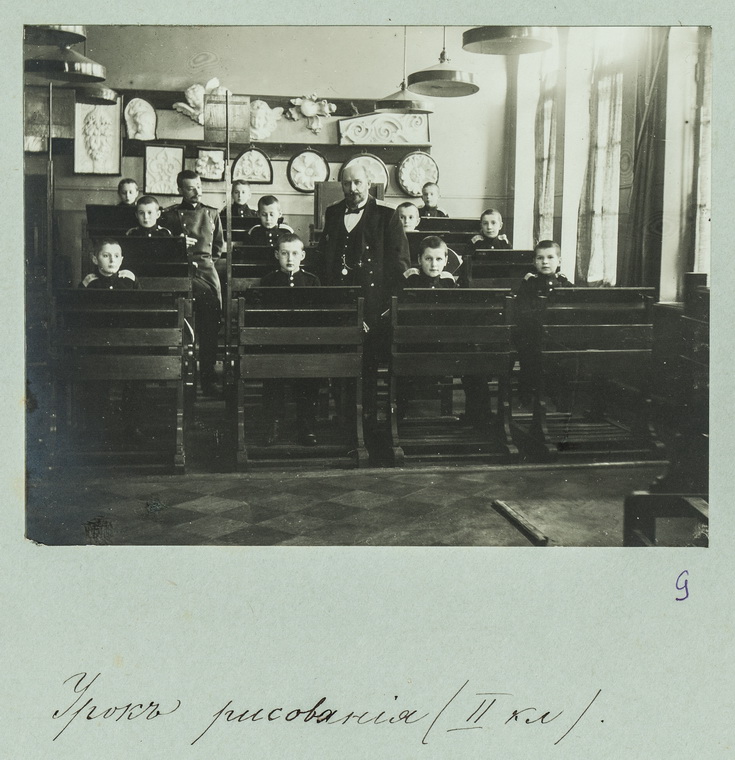 9
Урокъ рисованія (II кл).